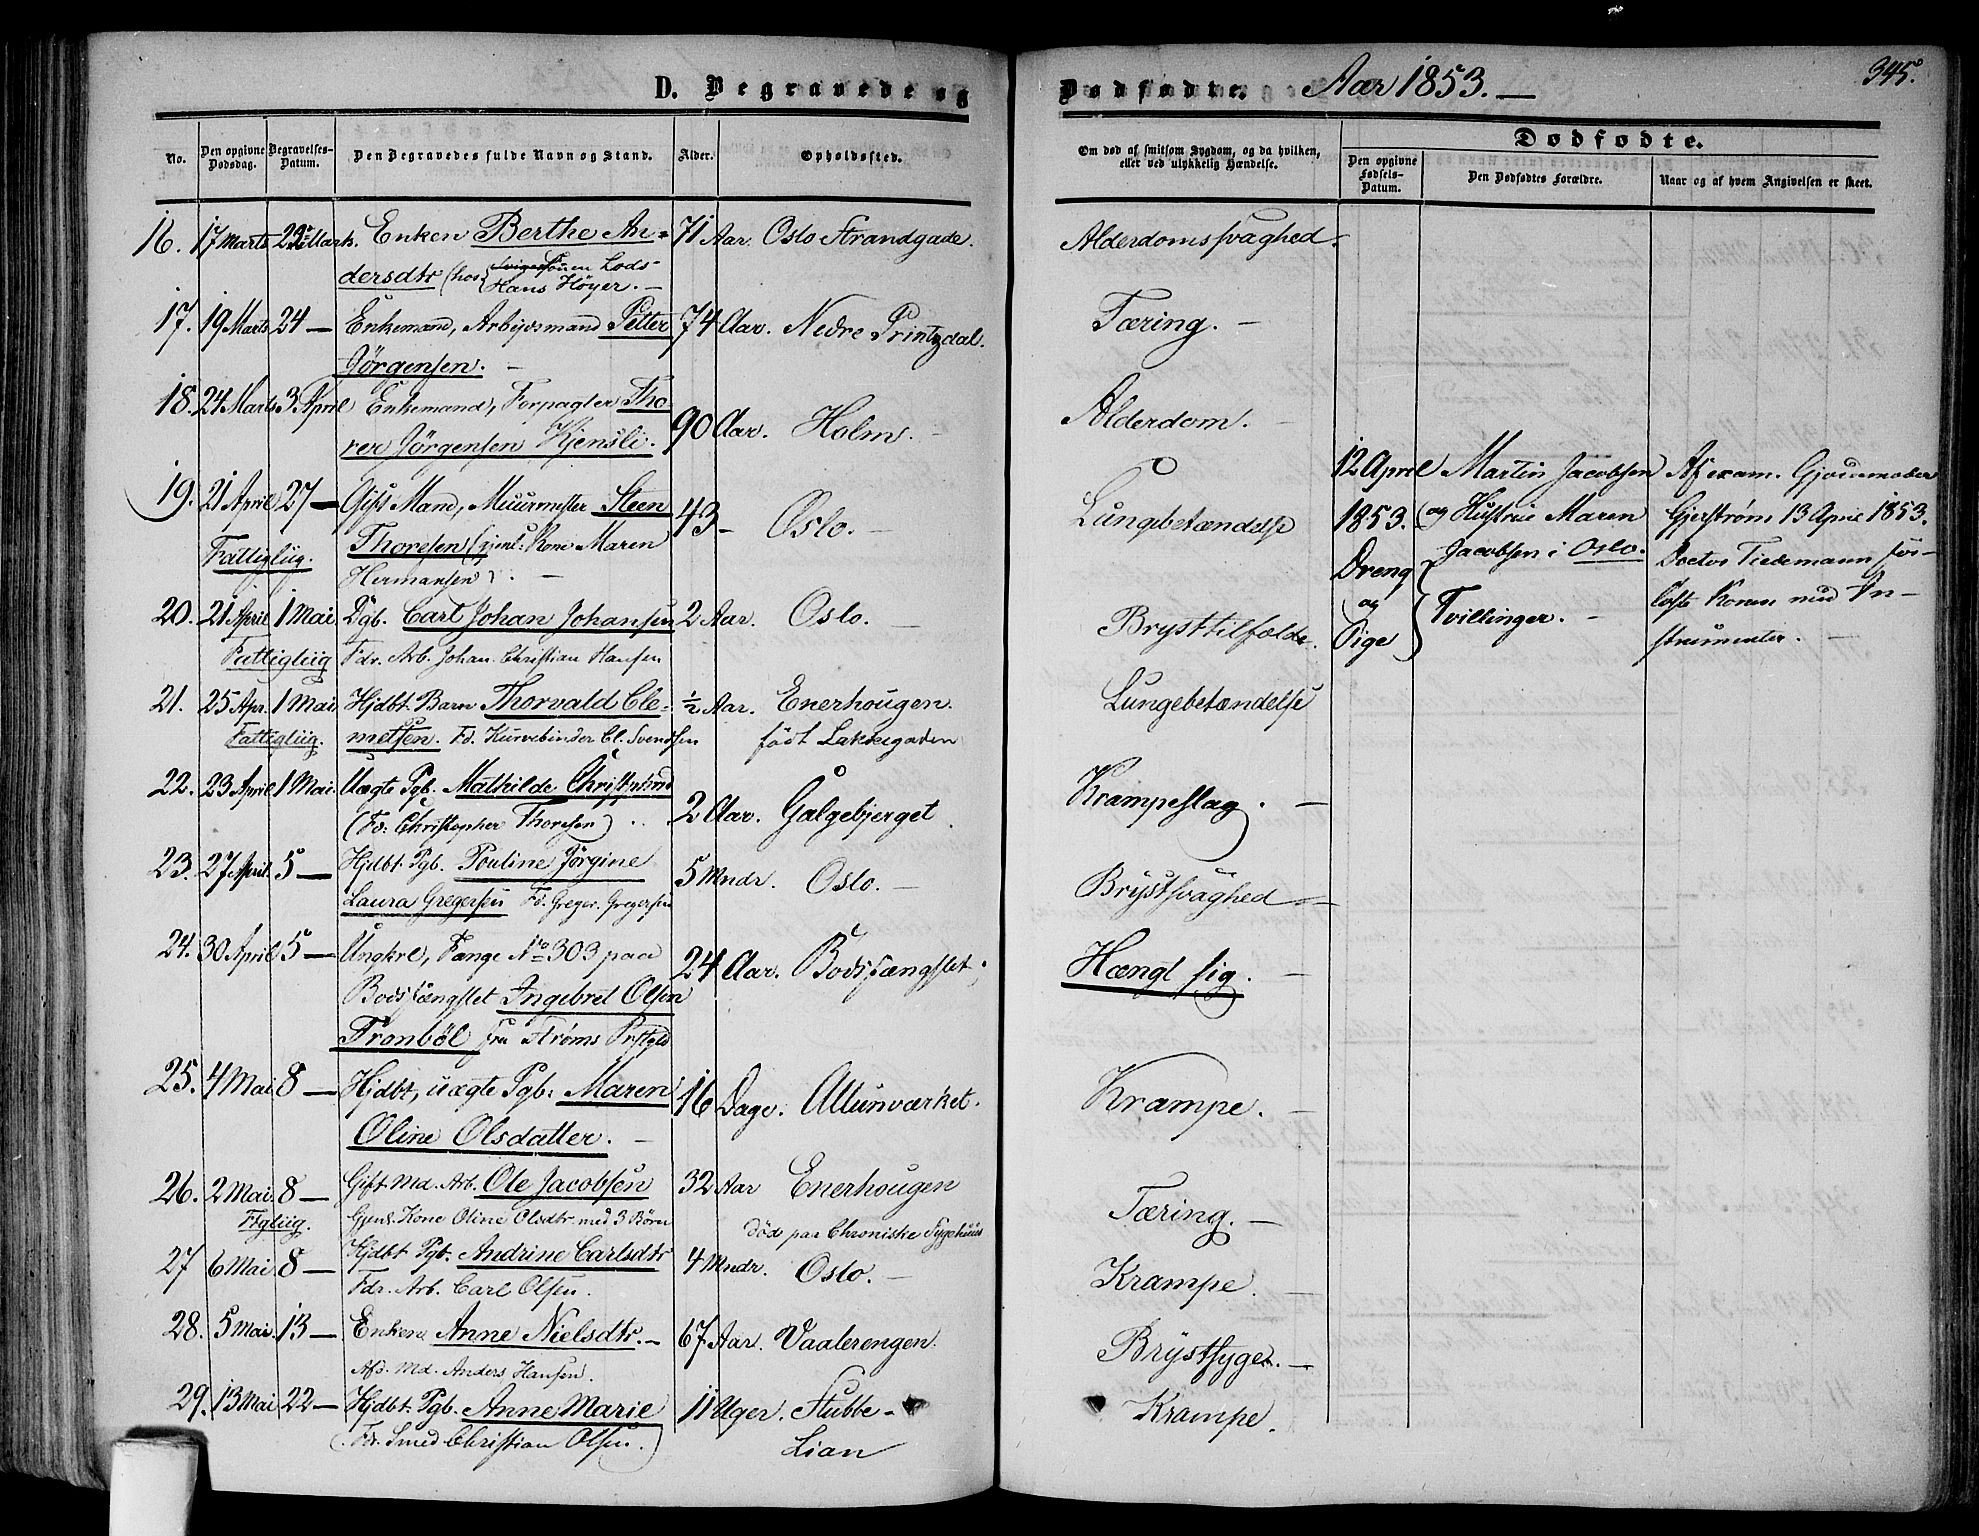 D. Begravede og Dødfødte. Aar 1853. —
345.
No. Den opgivne Dødsdag. Begravelses-Datum. Den Begravedes fulde Navn og Stand. Alder. Opholdssted. Om død af smitsom Sygdom, og da hvilken, eller ved ulykkelig Hændelse.
Dødfødte.
Den opgivne Fødsels-Datum. Den Dødfødtes Forældre. Naar og af hvem Angivelsen er skeet.
16. 17 Marts 23 Marts. Enken Berthe An- 71 Aar. Oslo Strandgade. Alderdomssvaghed.
dersdtr (hos Svigersönen Lods
Hans Höyer. —
17. 19 Marts 24 — Enkemand, Arbejdsmand Petter 74 Aar. Nedre Printzdal. Tæring. —
Jörgensen. —
18. 24 Marts 3 April Enkemand, Forpagter Tho- 90 Aar. Holm. — Alderdom. —
rer Jörgensen Kjensli.
19. 21 April 27 — Gift Mand, Muurmester Steen 43 — Oslo. — Lungebetændelse
Fattigliig. Thoresen (gjenl. Kone Maren
Hermansen). —
12 April 1853. Dreng og Pige
Martin Jacobsen
og Hustrue Maren
Jacobsen i Oslo.
Tvillinger. —
Af exam. Gjordemoder
Gjerström 13 April 1853.
Doctor Tiedemann for-
löste Konen med In-
strumenter. —
20. 21 April 1 Mai Dgb. Carl Johan Johansen 2 Aar. Oslo. — Brysttilfælde.
Fattigliig Fdr. Arb. Johan Christian Hansen
21. 25 Apr. 1 Mai Hjdbt. Barn Thorvald Cle- ½ Aar. Enerhougen Lungebetændelse
Fattigliig. metsen. Fd. Kurvebinder Cl. Svendsen födt Lakkegaden
22. 23 April 1 Mai. Uægte Pgb. Mathilde 2 Aar. Galgebjerget. Krampeslag. —
(Fd: Christopher Thoresen)
23. 27 April. 5 — Hjdbt. Pgb. Pouline Jörgine 5 Mndr. Oslo. — Brystsvaghed —
Laura Gregersen Fd. Greger. Gregersen
24. 30 April 5 — Ungkrl, Fange No 303 paa 24 Aar. Bodsfængslet. Hængt sig. —
Bodsfængslet Ingebret Olsen
Tronböl fra Ströms Prstgld
25. 4 Mai 8 — Hjdbt, uægte Pgb: Maren 16 Dage. Allunværket. Krampe. —
Oline Olsdatter. —
26. 2 Mai. 8 — Gift Md. Arb. Ole Jacobsen 32 Aar Enerhougen Tæring. —
Ftgliig. Gjenl. Kone Oline Olsdtr. med 3 Börn död paa Chroniske Sygehuus
27 6 Mai 8 — Hjdbt. Pgb. Andrine Carlsdtr 4 Mndr. Oslo. — Krampe. —
Fdr. Arb. Carl Olsen.
28. 5 Mai. 13 — Enken Anne Nielsdtr. — 67 Aar. Vaalerengen. Brystsyge. —
Afd. Md. Anders Hansen.
29. 13 Mai 22 — Hjdbt. Pgb. Anne Marie 11 Uger. Stubbe- Krampe.
(Fdr. Smed Christian Olsen.) Lian